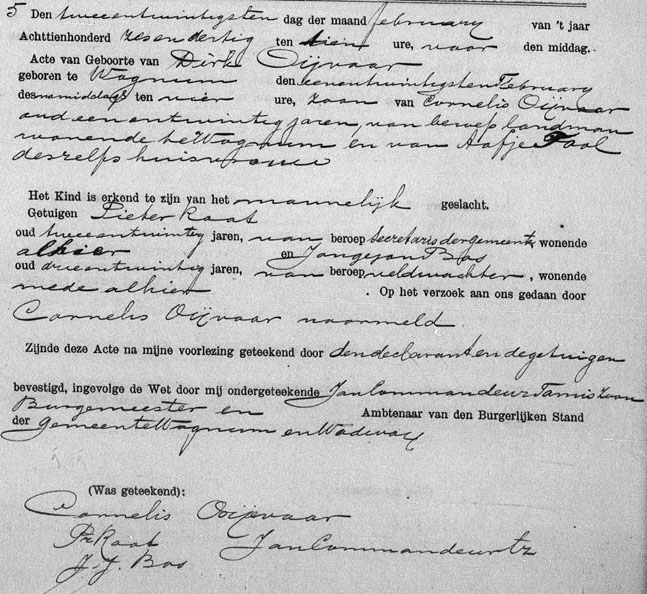 5 Den tweeentwintigsten dag der maand february van 't jaar
Achttienhonderd zesendertig ten tien ure, voor den middag.
Acte van Geboorte van Dirk Oijvaar
geboren te Wognum den eenentwintigsten February
des namiddags ten vier ure, zoon van Cornelis Oijvaar
oud eenentwintig jaren, van beroep landman
wonende te Wognum en van Aafje Tool
deszelfs huisvrouw
Het Kind is erkend te zijn van het mannelijk geslacht.
Getuigen Pieter Kaat
oud tweeentwintig jaren, van beroep secretaris der gemeente wonende
alhier en Jongejan Bos
oud drieentwintig jaren, van beroep veldwachter, wonende
mede alhier . Op het verzoek aan ons gedaan door
Cornelis Oijvaar voormeld.
Zijnde deze Acte na mijne voorlezing geteekend door den declarant en de getuigen
bevestigd, ingevolge de Wet door mij ondergeteekende Jan Commandeur Tamiszoon
Burgemeester en Ambtenaar van den Burgerlijken Stand
der Gemeente Wognum en Wadway
(Was geteekend):
Cornelis Ooijevaar
Pr Kaat Jan Commandeur Tz
J. J. Bos